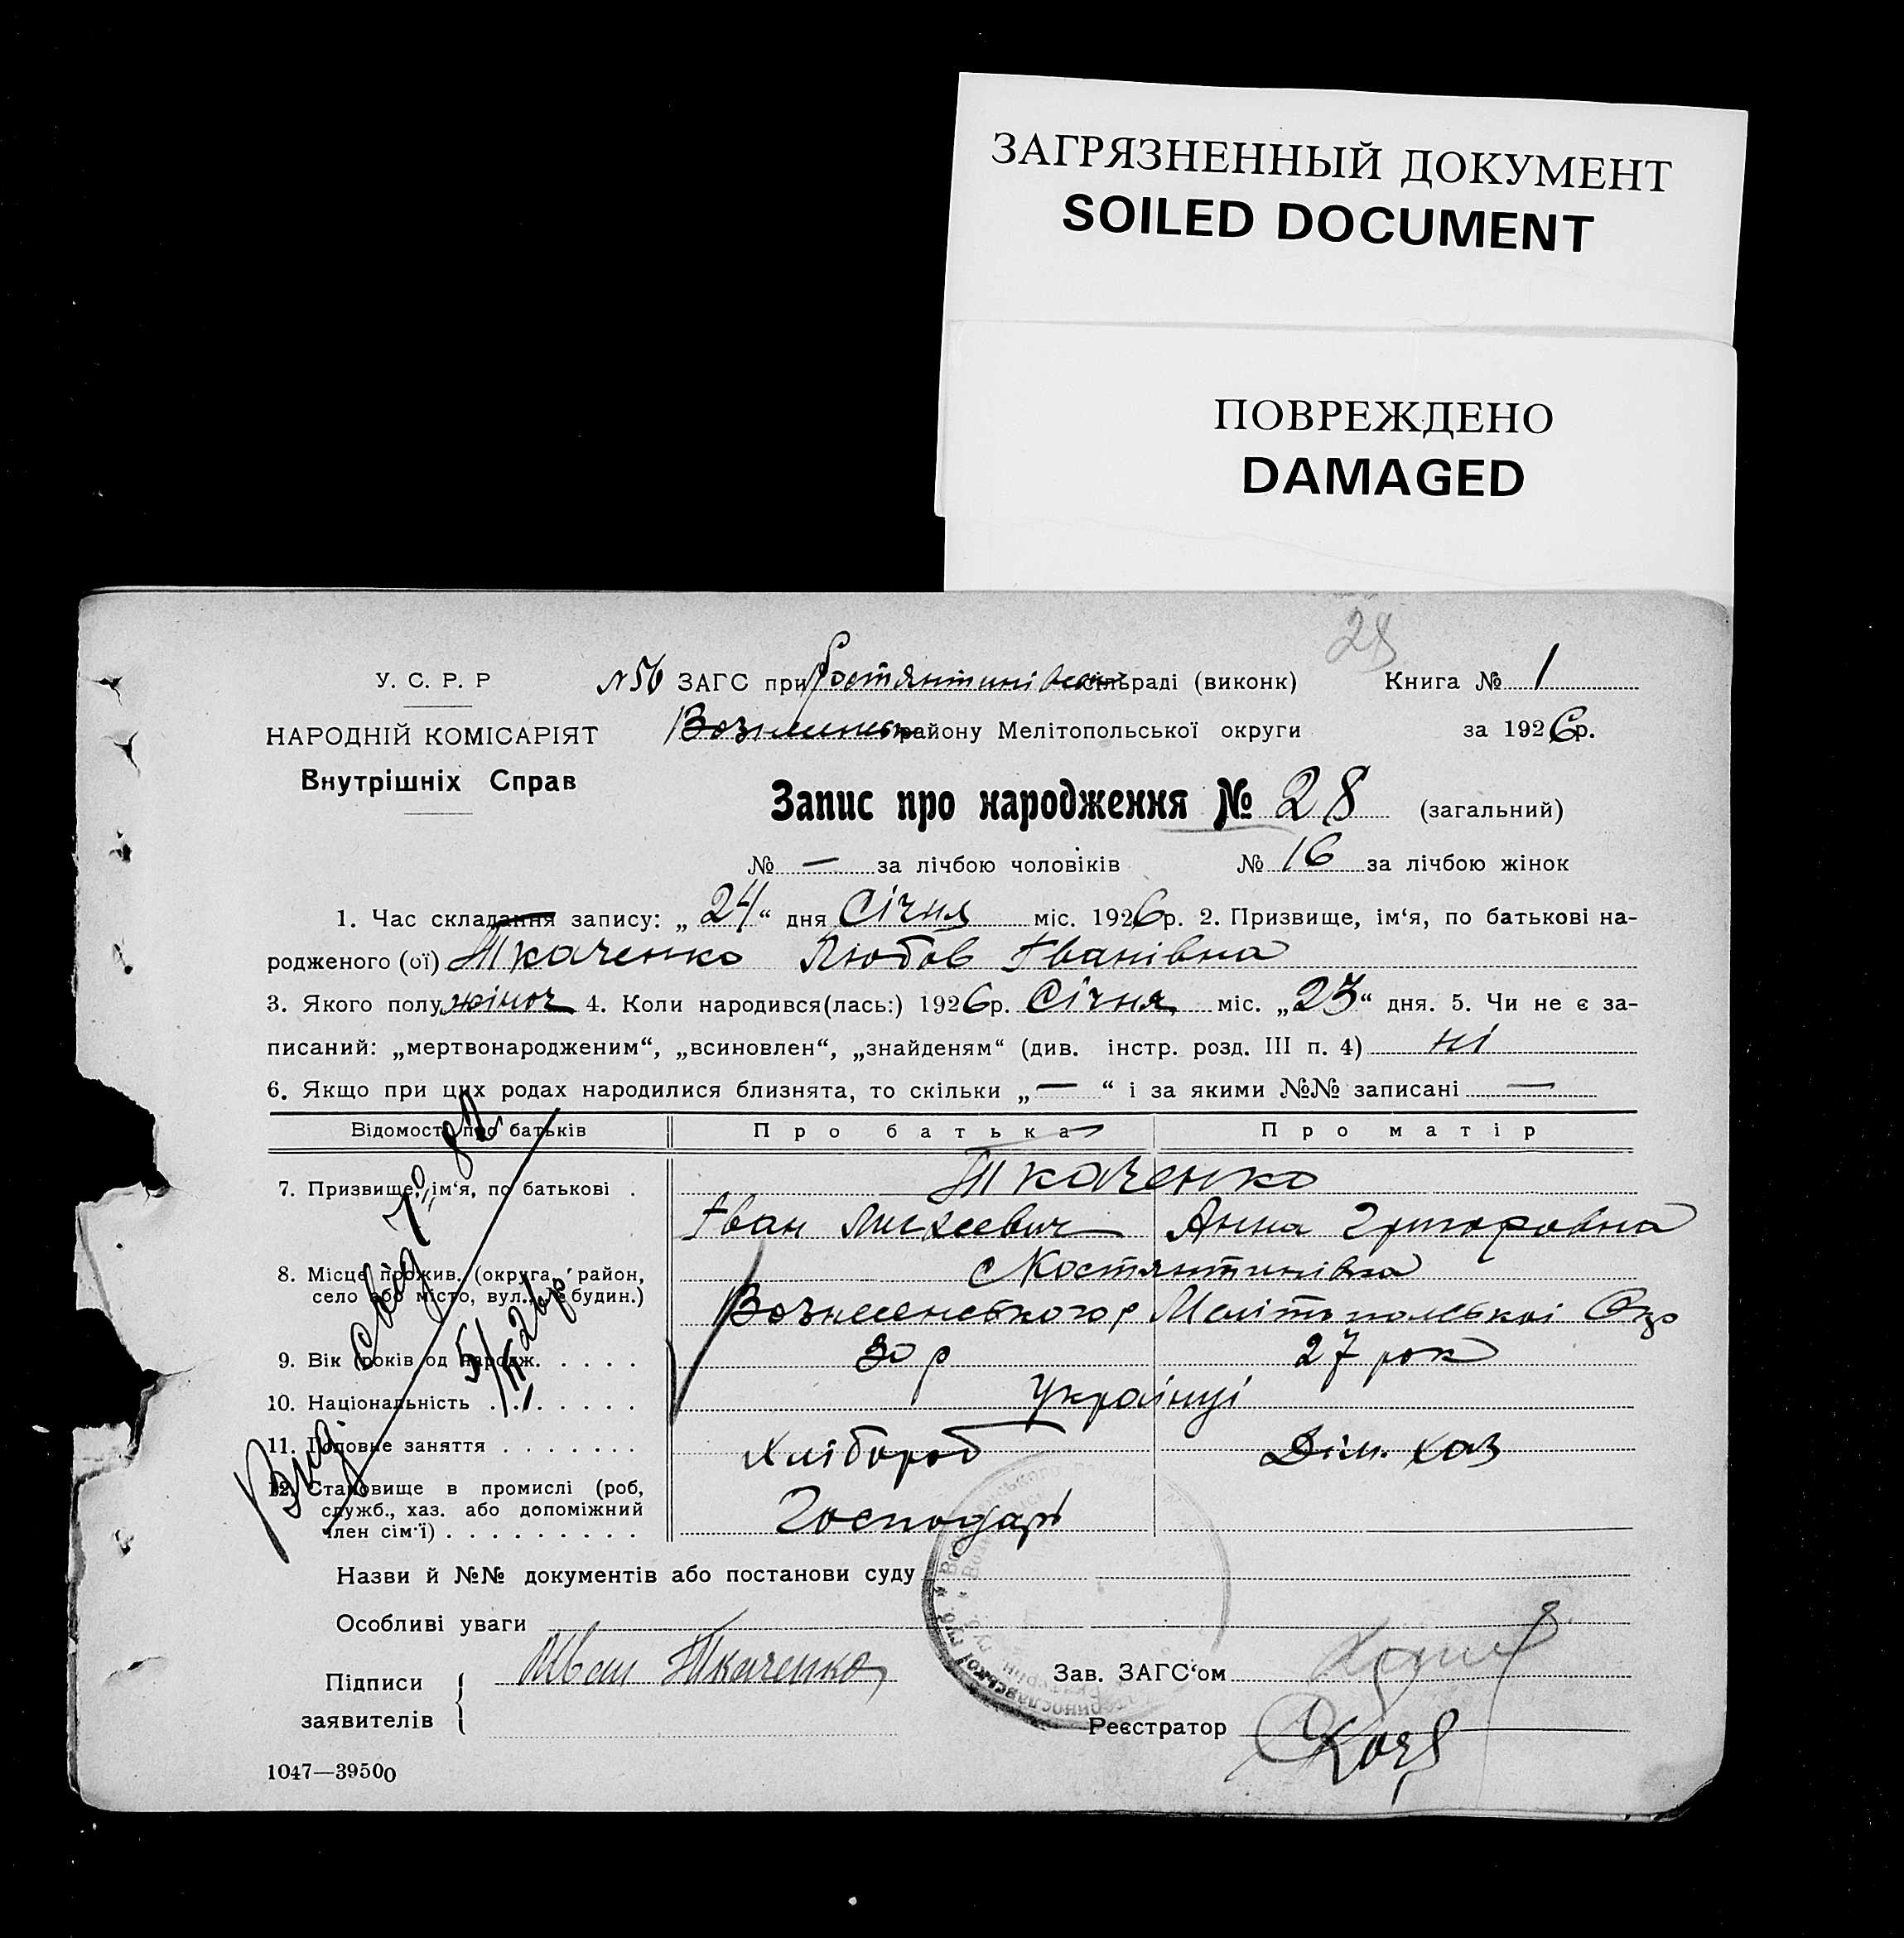 ЗАГРЯЗНЕННЫЙ ДОКУМЕНТ
SOILED DOCUMENT
ПОВРЕЖДЕНО
DAMAGED
28
У. С. Р. Р
НАРОДНІЙ КОМІСАРІЯТ
Внутрішніх Справ
N 56 ЗАГС при Костянтинівськ сільраді (виконк) Книга № 1
району Мелітопольської округи за 1926р.
Запис про народження № 28 (загальний)
№ — за лічбою чоловіків № 16 за лічбою жінок
1. Час складання запису: „24“ дня Січня міс. 1926р. 2. Призвище, ім‘я, по батькові на-
родженого (ої) Ткаченко Любов Іванівна
3. Якого полу жіноч 4. Коли народився(лась:) 1926р. Січня міс. „23“ дня. 5. Чи не є за-
писаний: „мертвонародженим“, „всиновлен“, „знайденям“ (див. інстр. розд. III п. 4) ні
6. Якщо при цих родах народилися близнята, то скільки „—“ і за якими №№ записані —
Відомості про батьків Про батька Про матір
7. Призвище, ім‘я, по батькові . Ткаченко
Іван Анна Григоровна
8. Місце прожив. (округа, район, село або місто, вул., № будин.) с Костянтинівка
Вознесенського р Мелітопольскоі Окр
9. Вік (років од народж. . . . . . 30 р 27 рок
10. Національність . . . . . . . . Українці
11. Головне заняття . . . . . . . Хлібороб Дім. хаз
12. Становище в промислі (роб,
служб., хаз. або допоміжний
член сім‘ї) . . . . . . . . . . Господарь
Назви й №№ документів або постанови суду
Особливі уваги
Підписи
заявителів
Иван Ткаченко
Зав. ЗАГС‘ом
Реєстратор
1047—39500